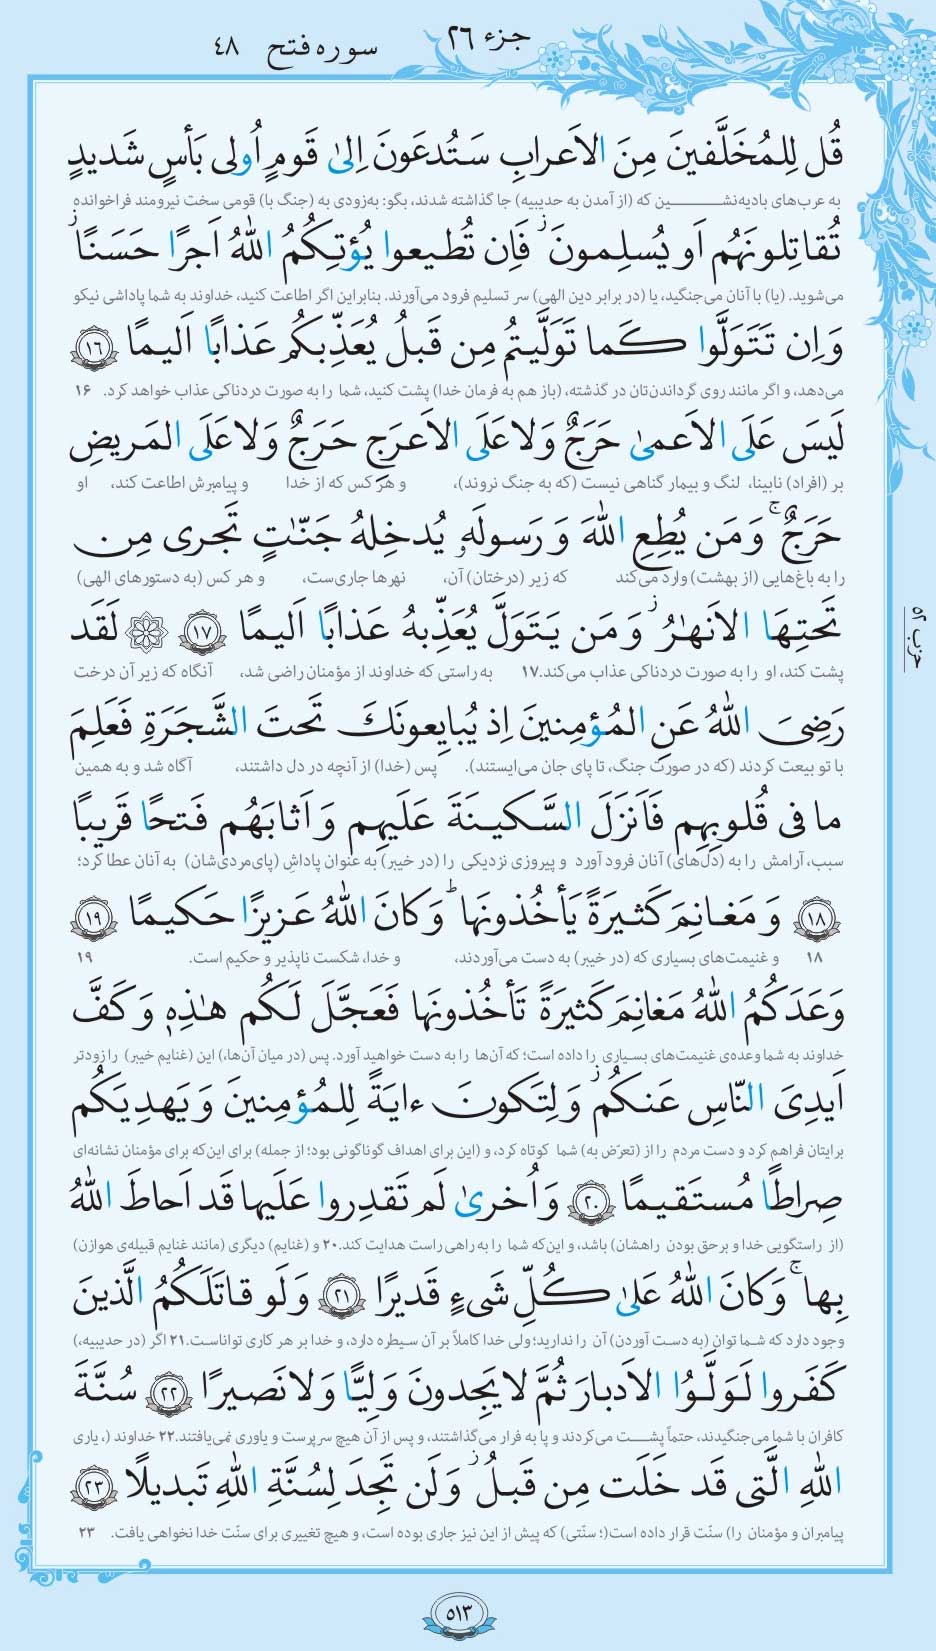 جزء ۲۶
سوره فتح ۴۸
قُل لِلمُخَلَّفینَ مِنَ الاَعرابِ سَتُدعَونَ اِلیٰ قَومٍ اُولی بَأسٍ شَدیدٍ
به عرب‌های بادیه‌نشـــــین که (از آمدن به حدیبیه) جا گذاشته شدند، بگو: به‌زودی به (جنگ با) قومی سخت نیرومند فراخوانده
تُقاتِلونَهُم اَو یُسلِمونَ ۖ فَاِن تُطیعوا یُؤتِکُمُ اللّٰهُ اَجرًا حَسَنًا ۖ
می‌شوید. (یا) با آنان می‌جنگید، یا (در برابر دین الهی) سر تسلیم فرود می‌آورند. بنابراین اگر اطاعت کنید، خداوند به شما پاداشی نیکو
وَاِن تَتَوَلَّوا کَما تَوَلَّیتُم مِن قَبلُ یُعَذِّبکُم عَذابًا اَلیمًا ۱۶
می‌دهد، و اگر مانند روی گرداندن‌تان در گذشته، (باز هم به فرمان خدا) پشت کنید، شما را به صورت دردناکی عذاب خواهد کرد. ۱۶
لَیسَ عَلَی الاَعمیٰ حَرَجٌ وَلا عَلَی الاَعرَجِ حَرَجٌ وَلا عَلَی المَریضِ
بر (افراد) نابینا، لنگ و بیمار گناهی نیست (که به جنگ نروند)، و هر کس که از خدا و پیامبرش اطاعت کند، او
حَرَجٌ ۚ وَمَن یُطِعِ اللّٰهَ وَ رَسولَهٗ یُدخِلهُ جَنّٰتٍ تَجری مِن
را به باغ‌هایی (از بهشت) وارد می‌کند که زیر (درختان) آن، نهرها جاری‌ست، و هر کس (به دستورهای الهی)
تَحتِهَا الاَنهٰرُ ۖ وَ مَن یَتَوَلَّ یُعَذِّبهُ عَذابًا اَلیمًا ۱۷ لَقَد
پشت کند، او را به صورت دردناکی عذاب می‌کند.۱۷ به راستی که خداوند از مؤمنان راضی شد، آنگاه که زیر آن درخت
رَضِیَ اللّٰهُ عَنِ المُؤمِنینَ اِذ یُبایِعونَكَ تَحتَ الشَّجَرَةِ فَعَلِمَ
با تو بیعت کردند (که در صورت جنگ، تا پای جان می‌ایستند). پس (خدا) از آنچه در دل داشتند، آگاه شد و به همین
ما فی قُلوبِهِم فَاَنزَلَ السَّکینَةَ عَلَیهِم وَ اَثابَهُم فَتحًا قَریبًا
سبب، آرامش را به (دل‌های) آنان فرود آورد و پیروزی نزدیکی را (در خیبر) به عنوان پاداشِ (پای‌مردی‌شان) به آنان عطا کرد؛
۱۸ وَ مَغانِمَ کَثیرَةً یَأخُذونَها ؕ وَ کانَ اللّٰهُ عَزیزًا حَکیمًا ۱۹
۱۸ و غنیمت‌های بسیاری که (در خیبر) به دست می‌آوردند، و خدا، شکست ناپذیر و حکیم است. ۱۹
وَعَدَکُمُ اللّٰهُ مَغانِمَ کَثیرَةً تَأخُذونَها فَعَجَّلَ لَکُم هٰذِهٖ وَ کَفَّ
خداوند به شما وعده‌ی غنیمت‌های بسیاری را داده است؛ که آن‌ها را به دست خواهید آورد. پس (در میان آن‌ها،) این (غنایم خیبر) را زودتر
اَیدِیَ النّاسِ عَنکُم ۖ وَ لِتَکونَ ءایَةً لِلمُؤمِنینَ وَ یَهدِیَکُم
برایتان فراهم کرد و دست مردم را از (تعرّض به) شما کوتاه کرد، و (این برای اهداف گوناگونی بود؛ از جمله) برای این‌که برای مؤمنان نشانه‌ای
صِراطًا مُستَقیمًا ۲۰ وَ اُخریٰ لَم تَقدِروا عَلَیها قَد اَحاطَ اللّٰهُ
(از راستگویی خدا و برحق بودن راهشان) باشد، و این‌که شما را به راهی راست هدایت کند.۲۰ و (غنایم) دیگری (مانند غنایم قبیله‌ی هوازن)
بِها ۚ وَ کانَ اللّٰهُ عَلیٰ کُلِّ شَیءٍ قَدیرًا ۲۱ وَ لَو قاتَلَکُمُ الَّذینَ
وجود دارد که شما توانِ (به دست آوردن) آن را ندارید؛ ولی خدا کاملاً بر آن سیطره دارد، و خدا بر هر کاری تواناست.۲۱ اگر (در حدیبیه،)
کَفَروا لَوَلَّوُا الاَدبارَ ثُمَّ لا یَجِدونَ وَلِیًّا وَ لا نَصیرًا ۲۲ سُنَّةَ
کافران با شما می‌جنگیدند، حتماً پشـــت می‌کردند و پا به فرار می‌گذاشتند، و پس از آن هیچ سرپرست و یاوری نمی‌یافتند.۲۲ خداوند (، یاری
اللّٰهِ الَّتی قَد خَلَت مِن قَبلُ ۖ وَ لَن تَجِدَ لِسُنَّةِ اللّٰهِ تَبدیلًا ۲۳
پیامبران و مؤمنان را) سنّت قرار داده است (؛ سنّتی) که پیش از این نیز جاری بوده است، و هیچ تغییری برای سنّت خدا نخواهی یافت. ۲۳
حزب ۵۲
۵۱۳